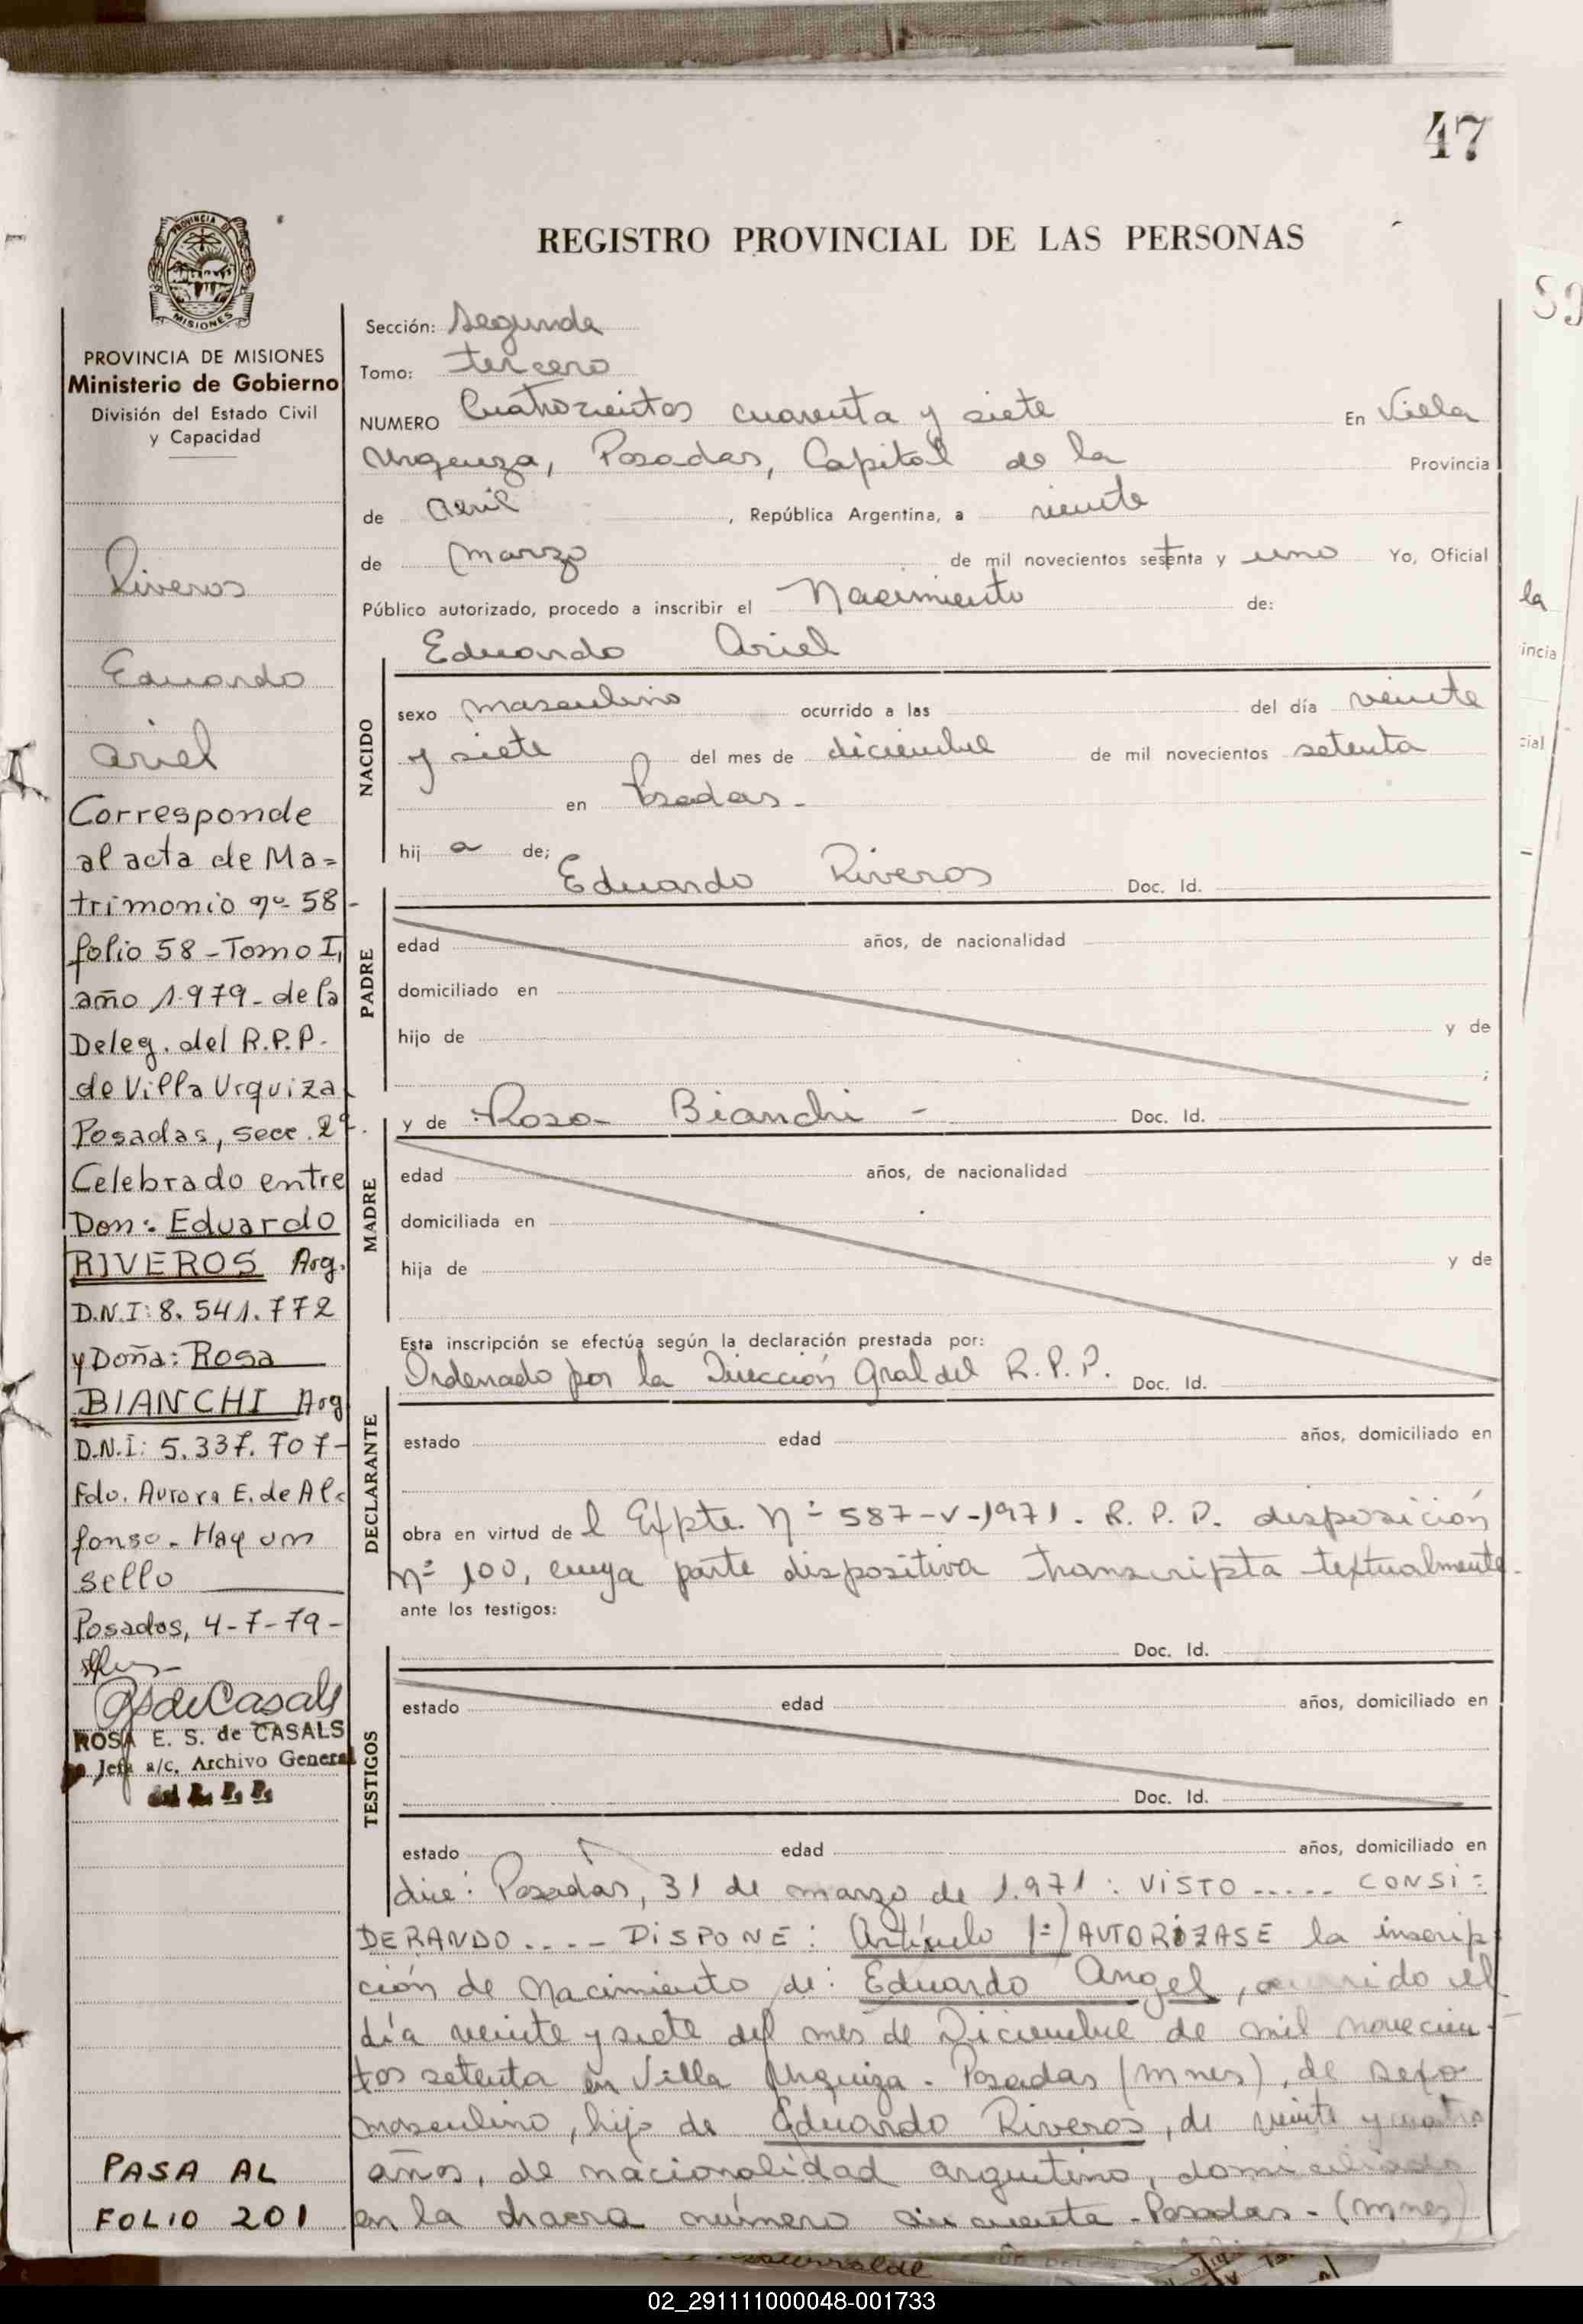 47
REGISTRO PROVINCIAL DE LAS PERSONAS
PROVINCIA DE
MISIONES
PROVINCIA DE MISIONES
Ministerio de Gobierno
División del Estado Civil
y Capacidad
Riveros
Eduardo
Ariel
Corresponde
al acta de Ma=
trimonio nº 58-
folio 58 - Tomo I,
año 1.979 - de la
Deleg. del R.P.P.
de Villa Urquiza
Posadas, secc. 2ª.
Celebrado entre
Don: Eduardo
RIVEROS Arg.
D.N.I: 8.541.772
y Doña: Rosa
BIANCHI Arg
D.N.I: 5.337.707-
Fdo. Aurora E. de Al=
fonso. Hay un
sello
Posadas, 4-7-79-
RSdeCasals
ROSA E. S. de CASALS
Jefa a/c. Archivo General
PASA AL
FOLIO 201
Sección: Segunda
Tomo: tercero
NUMERO Cuatrocientos cuarenta y siete En Villa
Urquiza, Posadas, Capital de la Provincia
de Abril , República Argentina, a veinte
de Marzo de mil novecientos setenta y uno Yo, Oficial
Público autorizado, procedo a inscribir el Nacimiento de:
Eduardo Ariel
NACIDO
sexo masculino ocurrido a las del día veinte
y siete del mes de diciembre de mil novecientos setenta
en Posadas.-
hij a de;
Eduardo Riveros Doc. Id.
PADRE
edad años, de nacionalidad
domiciliado en
hijo de y de
;
y de Rosa Bianchi - Doc. Id.
MADRE
edad años, de nacionalidad
domiciliada en
hija de y de
Esta inscripción se efectúa según la declaración prestada por:
Ordenado por la Dirección Gral del R. P. P. Doc. Id.
DECLARANTE
estado edad años, domiciliado en
obra en virtud de l Expte. Nº 587-V-1971. R. P. P. disposición
nº 100, cuya parte dispositiva transcripta textualmente
ante los testigos:
Doc. Id.
TESTIGOS
estado edad años, domiciliado en
Doc. Id.
estado edad años, domiciliado en
dice: Posadas, 31 de marzo de 1.971: VISTO ..... CONSI=
DERANDO .... DISPONE: Artículo 1º) AUTORÍZASE la inscrip
ción de Nacimiento de: Eduardo Angel, ocurrido el
día veinte y siete del mes de Diciembre de mil novecien-
tos setenta en Villa Urquiza - Posadas (Mnes), de sexo
masculino, hijo de Eduardo Riveros, de veinte y cuatro
años, de nacionalidad argentino, domiciliado
en la chacra número cincuenta - Posadas - (Mnes)
59
la
incia
cial
02_291111000048-001733